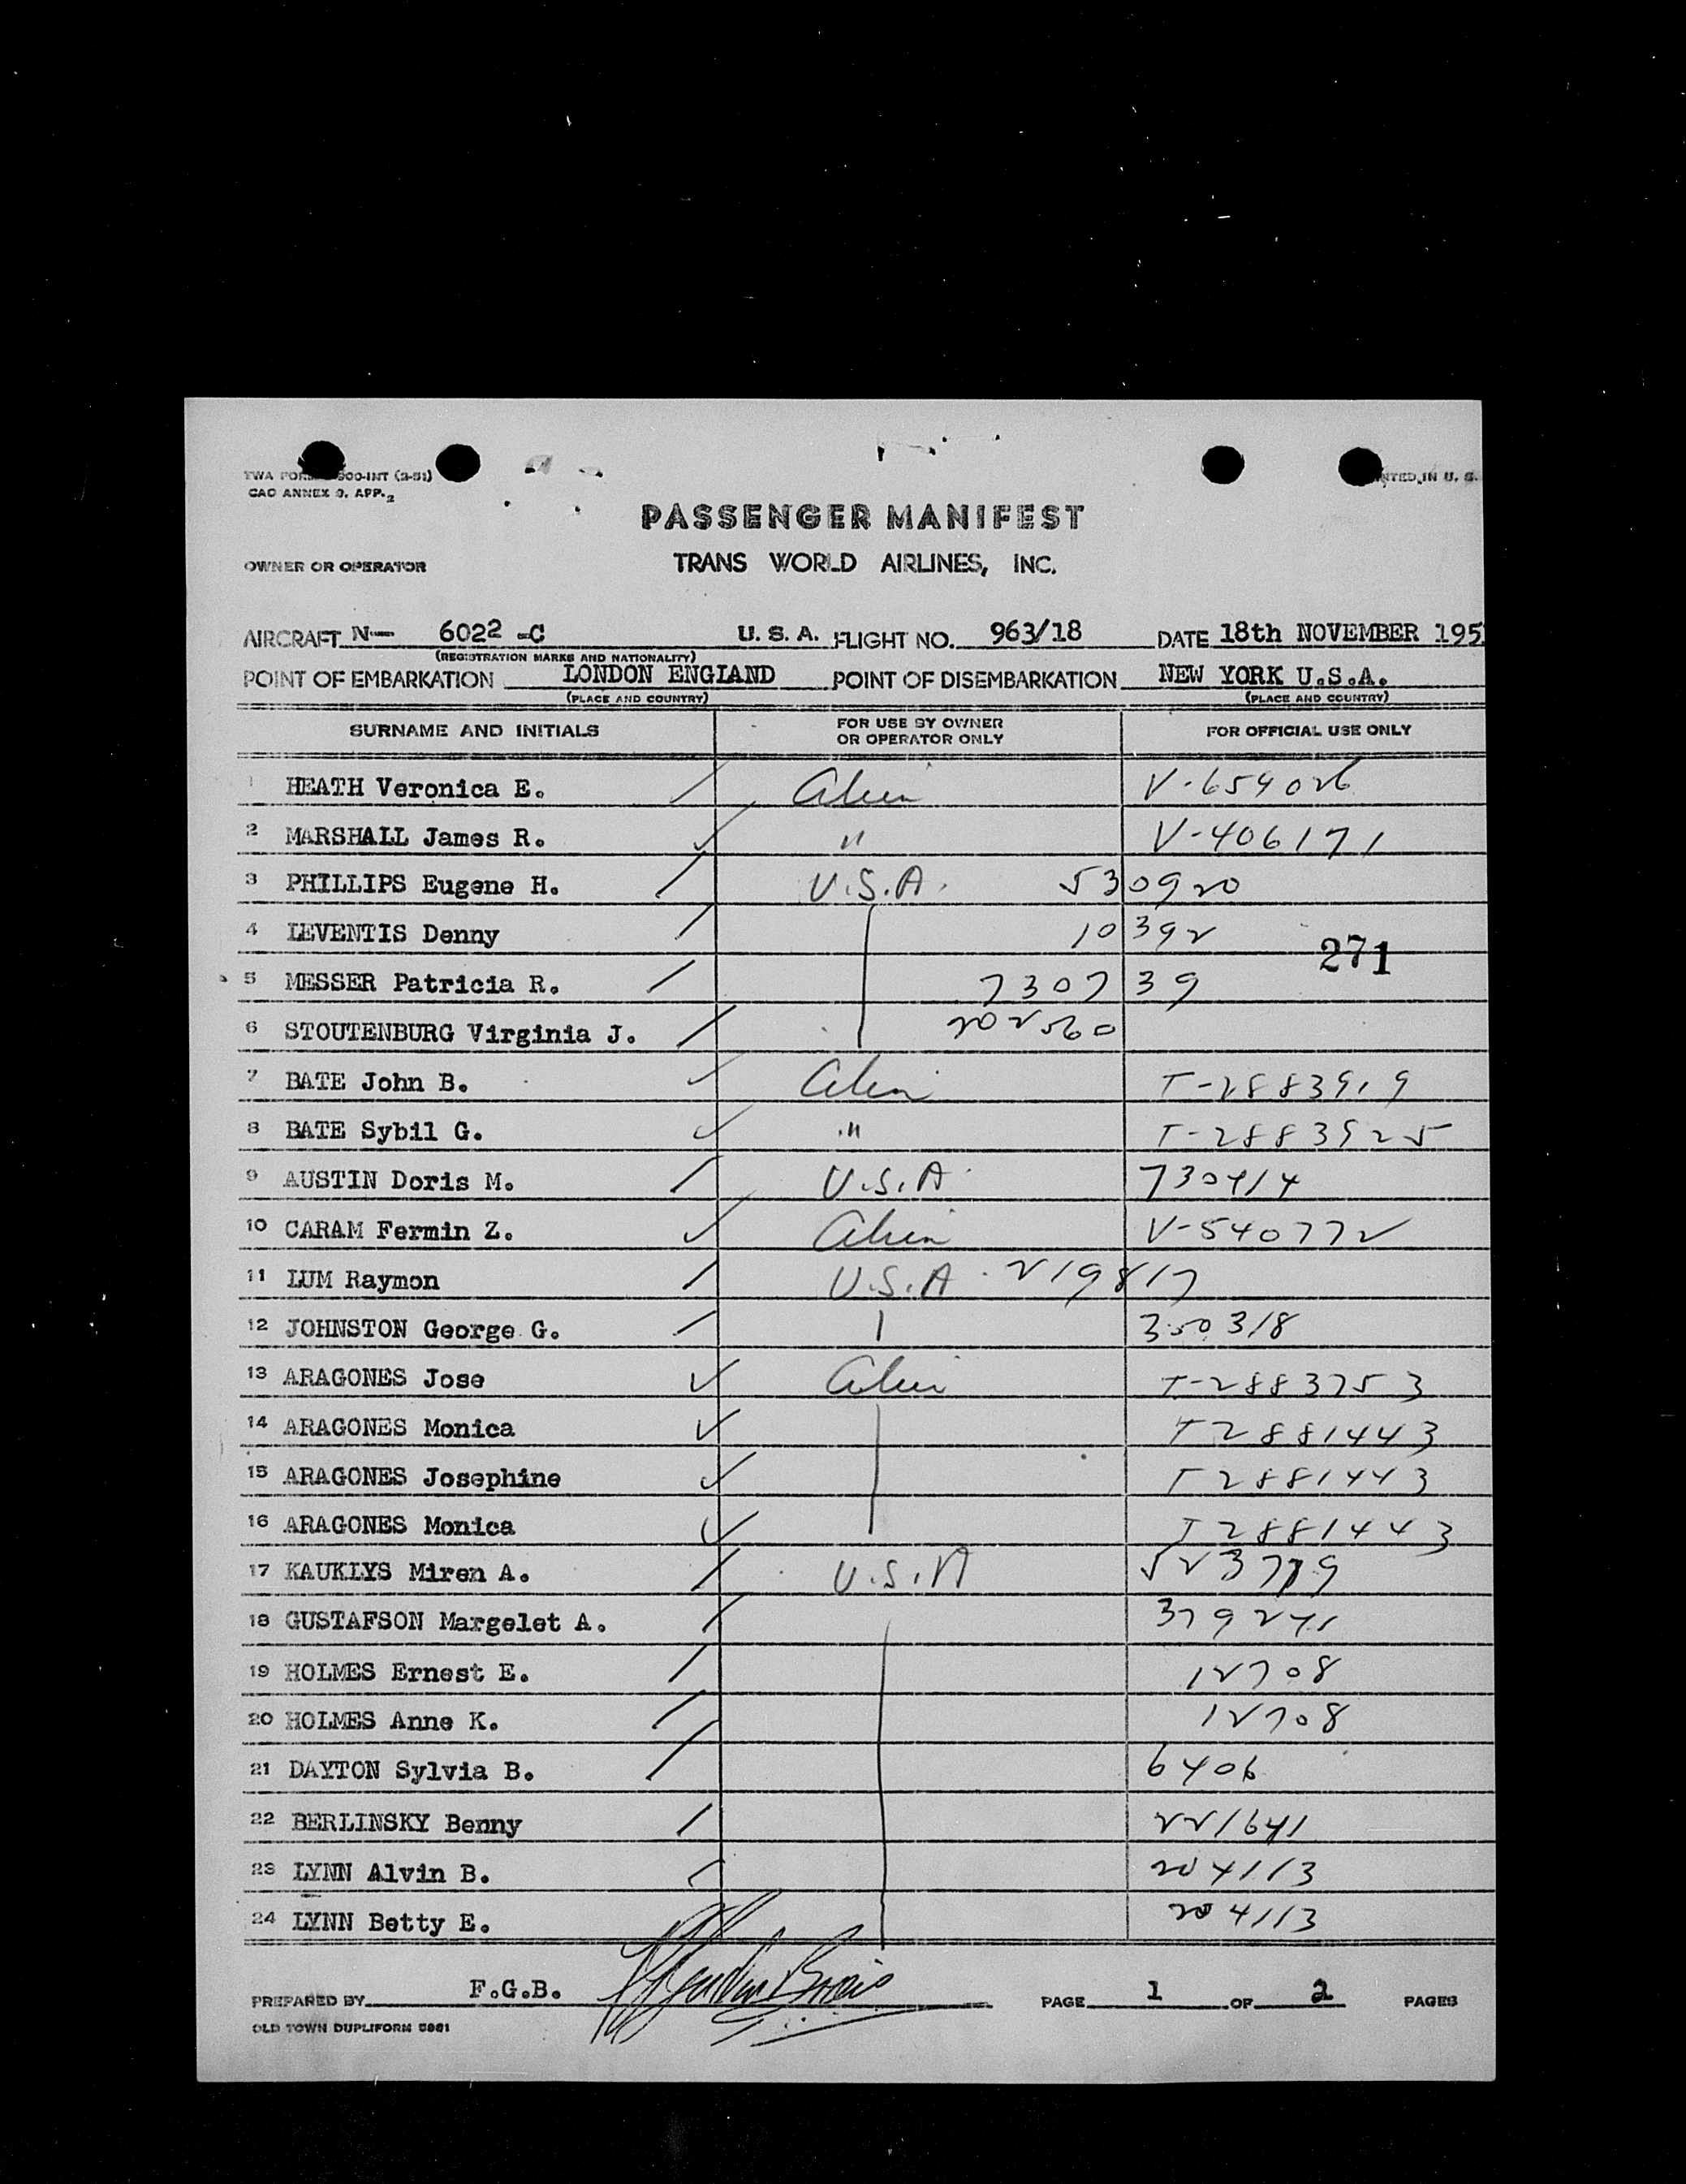 TWA FOR 900-INT (3-51)
CAO ANNEX 9, APP. 2
NTED IN U. S.
PASSENGER MANIFEST
OWNER OR OPERATOR TRANS WORLD AIRLINES, INC.
AIRCRAFT N— 6022 -C U. S. A. FLIGHT NO. 963/18 DATE 18th NOVEMBER 195
(REGISTRATION MARKS AND NATIONALITY)
POINT OF EMBARKATION LONDON ENGLAND POINT OF DISEMBARKATION NEW YORK U.S.A.
(PLACE AND COUNTRY) (PLACE AND COUNTRY)
SURNAME AND INITIALS FOR USE BY OWNER OR OPERATOR ONLY FOR OFFICIAL USE ONLY
1 HEATH Veronica E. Alien V-654026
2 MARSHALL James R. " V-406171
3 PHILLIPS Eugene H. U.S.A. 530920
4 LEVENTIS Denny 10392
271
5 MESSER Patricia R. 730739
6 STOUTENBURG Virginia J. 202560
7 BATE John B. Alien T-2883919
8 BATE Sybil G. " T-2883925
9 AUSTIN Doris M. U.S.A. 730414
10 CARAM Fermin Z. Alien V-540772
11 LUM Raymon U.S.A. 219817
12 JOHNSTON George G. 350318
13 ARAGONES Jose Alien T-2883753
14 ARAGONES Monica T2881443
15 ARAGONES Josephine T2881443
16 ARAGONES Monica T2881443
17 KAUKLYS Miren A. U.S.A
18 GUSTAFSON Margelet A. 379241
19 HOLMES Ernest E. 12708
20 HOLMES Anne K. 12708
21 DAYTON Sylvia B. 6406
22 BERLINSKY Benny 221641
23 LYNN Alvin B. 204113
24 LYNN Betty E. 204113
PREPARED BY F.G.B. PAGE 1 OF 2 PAGES
OLD TOWN DUPLIFORM